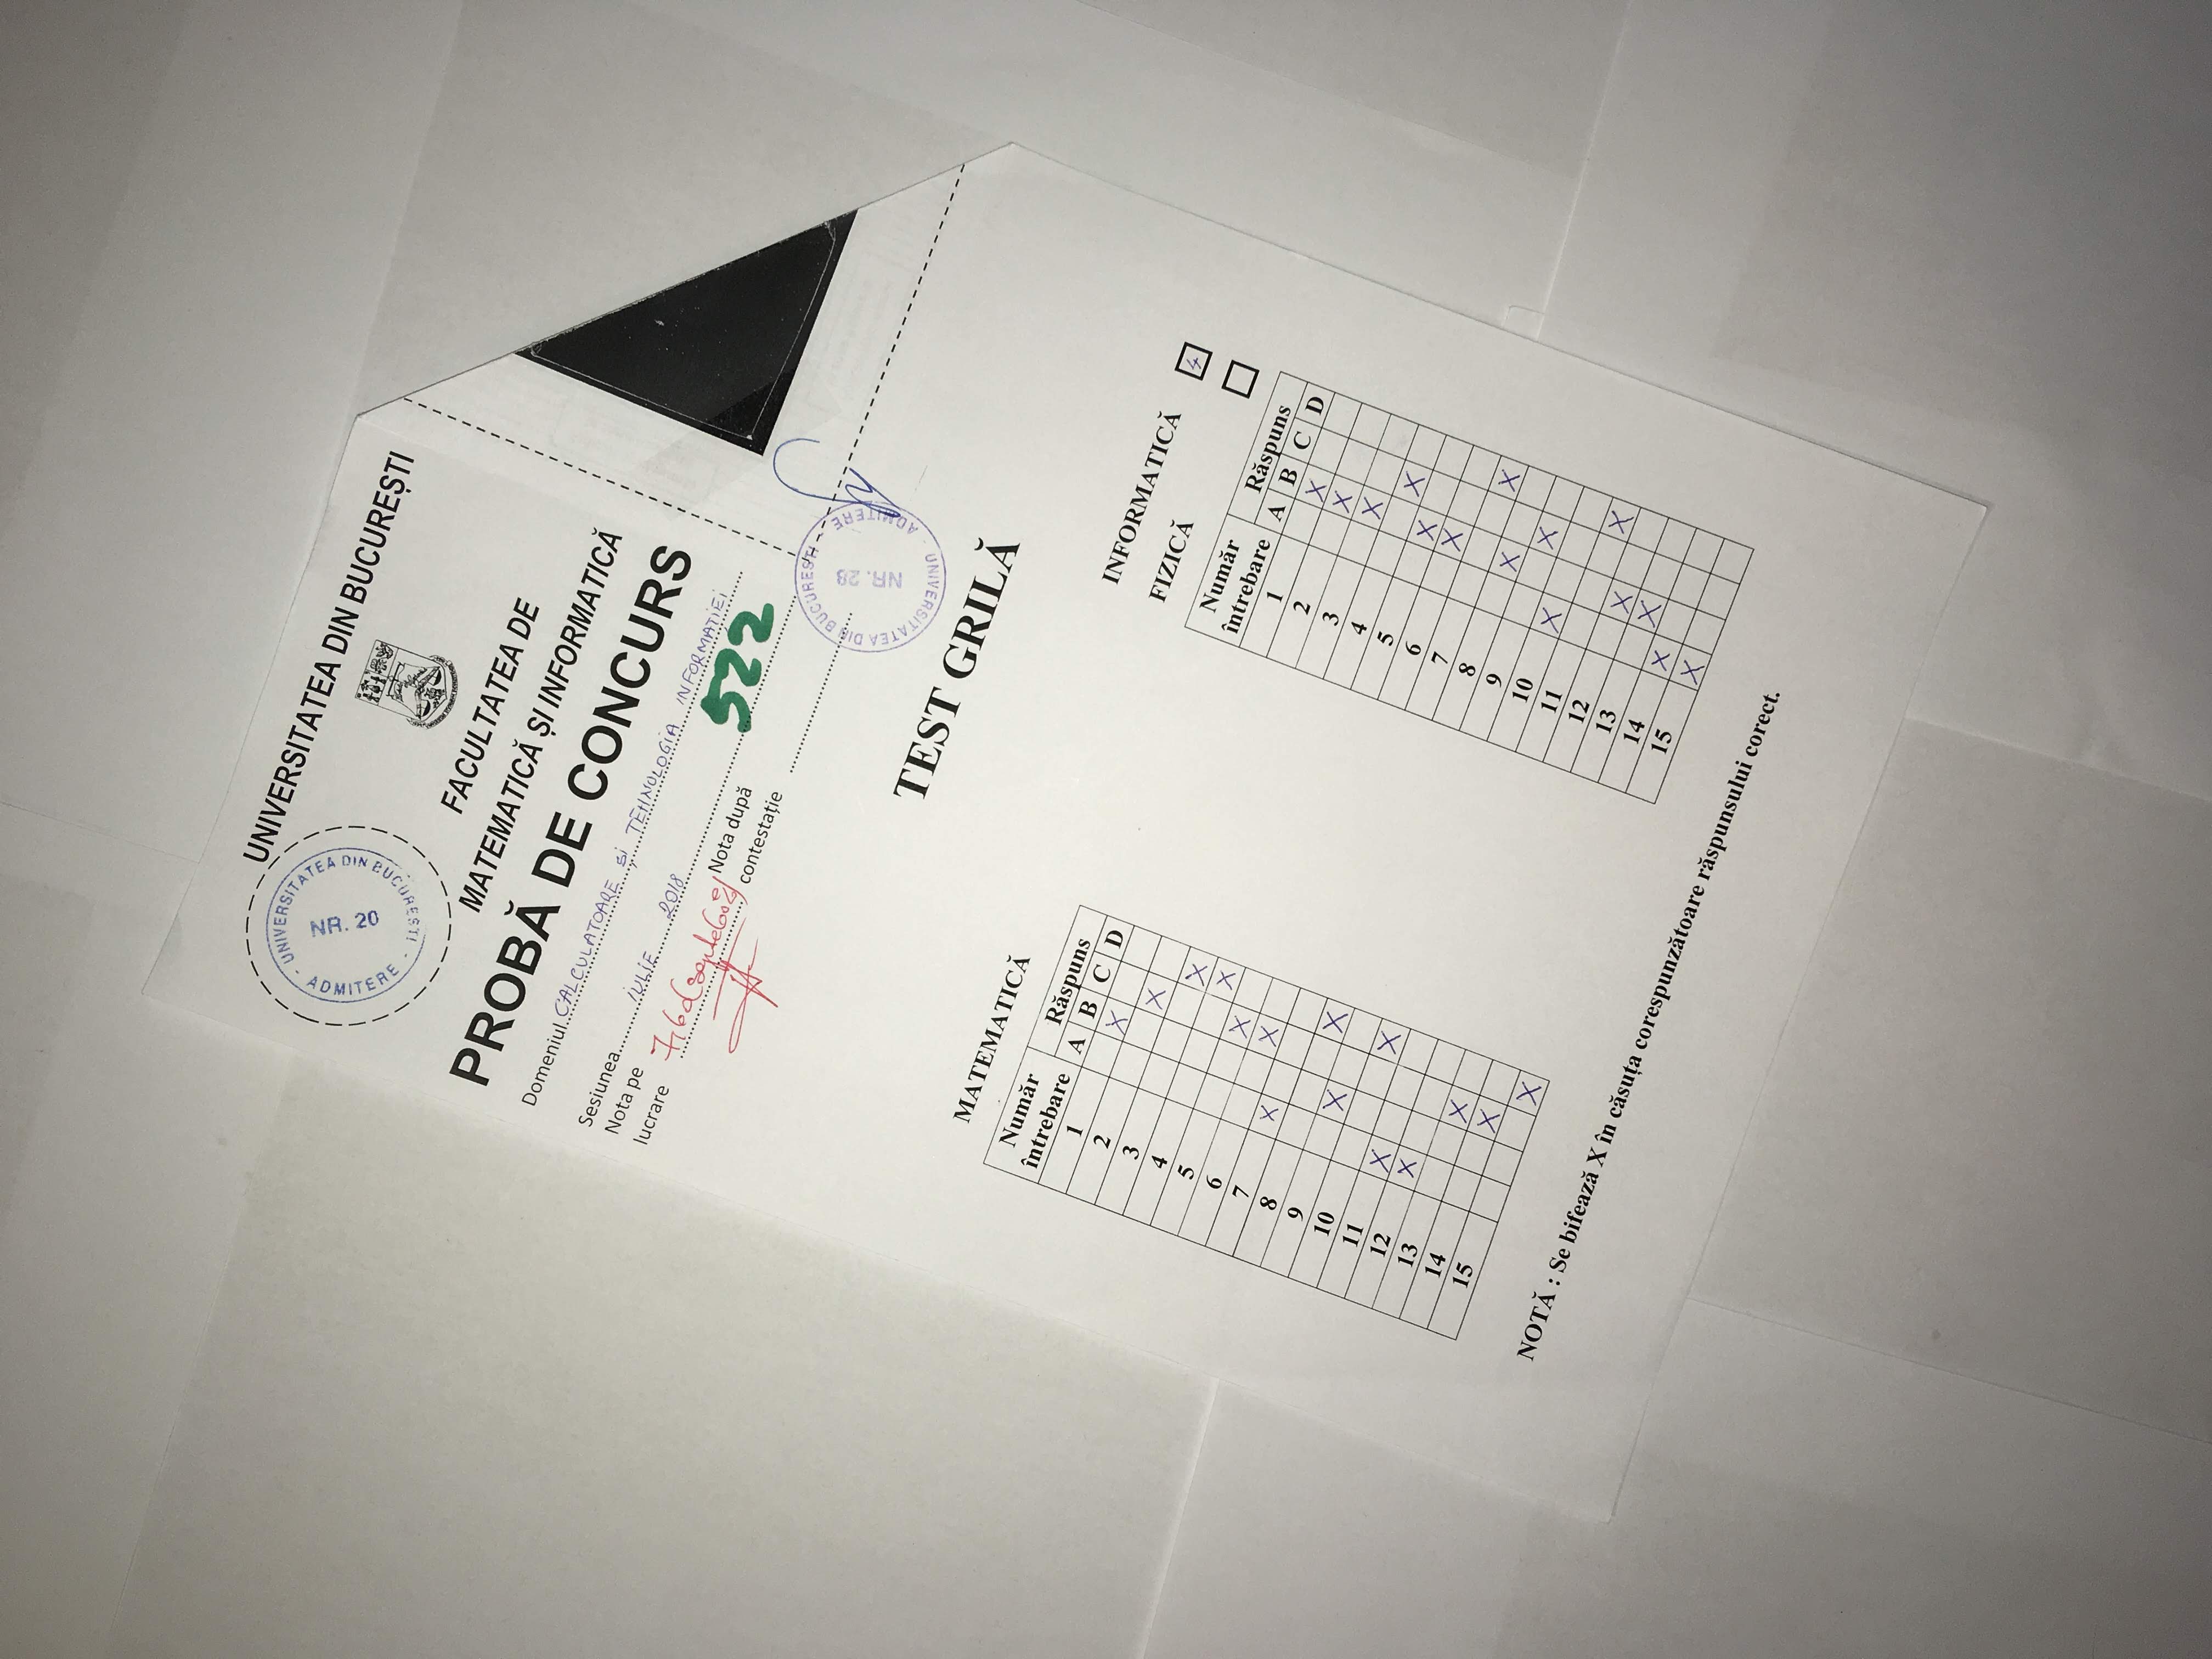 UNIVERSITATEA DIN BUCUREȘTI
UNIVERSITATEA DIN BUCUREȘTI - ADMITERE -
NR. 20
FACULTATEA DE
MATEMATICĂ ȘI INFORMATICĂ
PROBĂ DE CONCURS
Domeniul CALCULATOARE și TEHNOLOGIA INFORMAȚIEI
Sesiunea IULIE 2018
522
Nota pe lucrare 7,60
Nota după contestație
UNIVERSITATEA DIN BUCUREȘTI - ADMITERE -
NR. 28
TEST GRILĂ
MATEMATICĂ
Număr întrebare Răspuns
A B C D
1 X
2 X
3 X
4 X
5 X
6 X
7 X
8 X
9 X
10 X
11 X
12 X
13 X
14 X
15 X
INFORMATICĂ
FIZICĂ
Număr întrebare Răspuns
A B C D
1 X
2 X
3 X
4 X
5 X
6 X
7 X
8 X
9 X
10 X
11 X
12 X
13 X
14 X
15 X
NOTĂ : Se bifează X în căsuța corespunzătoare răspunsului corect.